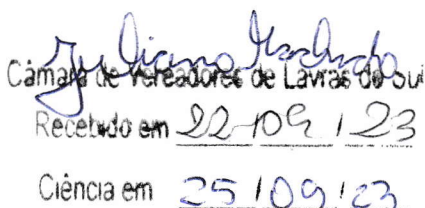 Juliana Machado
Câmara de Vereadores de Lavras do Sul
Recebido em 22/09/23
Ciência em 25/09/23